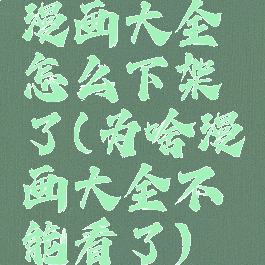 漫画大全
怎么下架
了(为啥漫
画大全不
能看了)